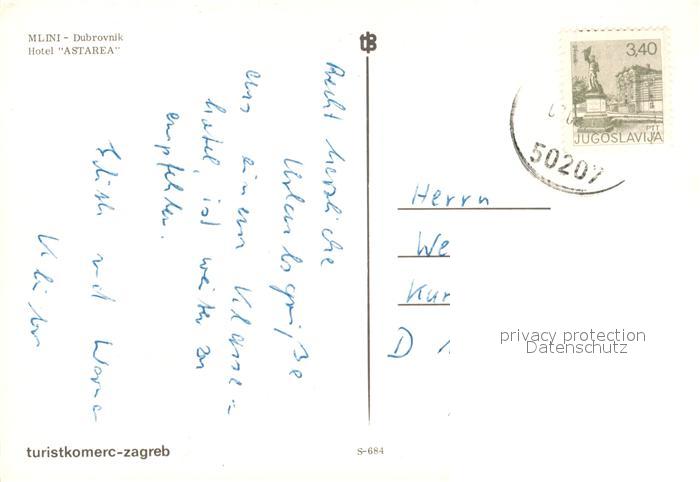 MLINI - Dubrovnik
Hotel "ASTAREA"
Recht herzliche
Urlaubsgrüße
aus einem Klasse-
hotel, ist weiter zu
empfehlen.
Edith und Werner
turistkomerc-zagreb
S-684
3,40
PTT
JUGOSLAVIJA
50207
Herrn
We
Kur
D
privacy protection
Datenschutz